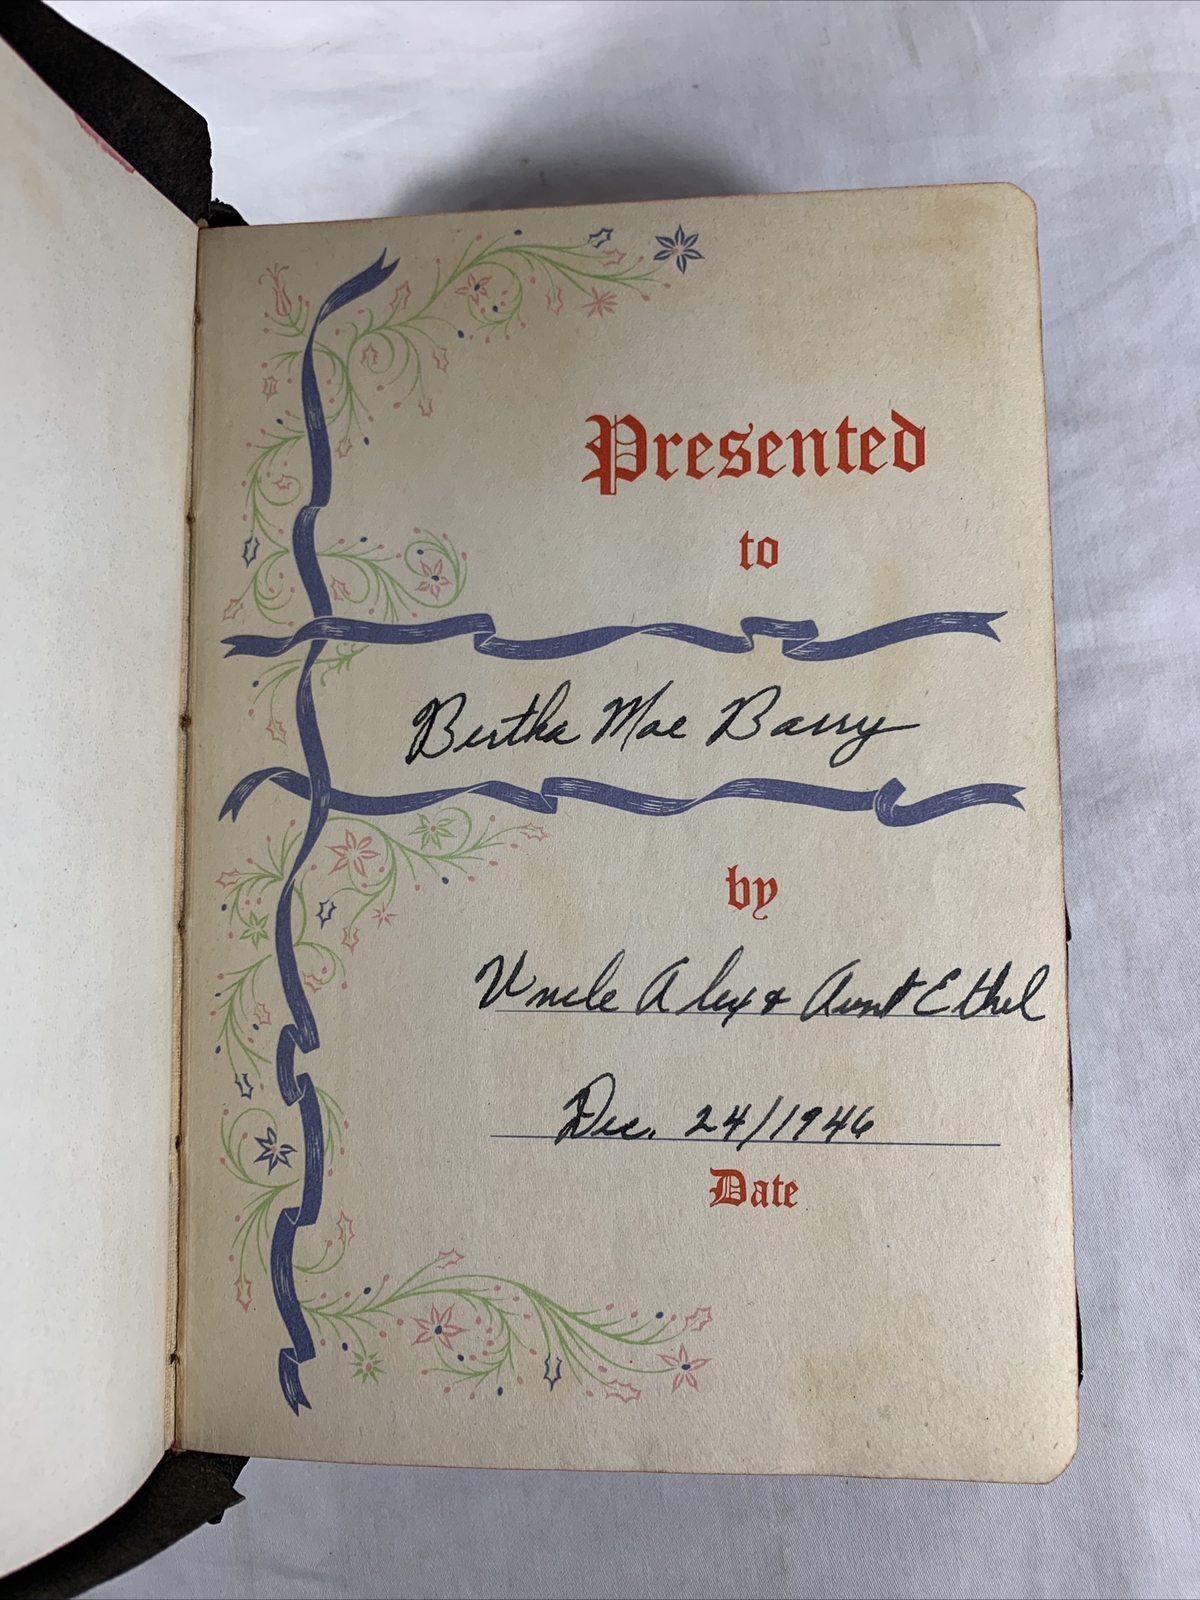 Presented
to
Bertha Mae Barry
by
Uncle Alex & Aunt Ethel
Dec. 24/1946
Date